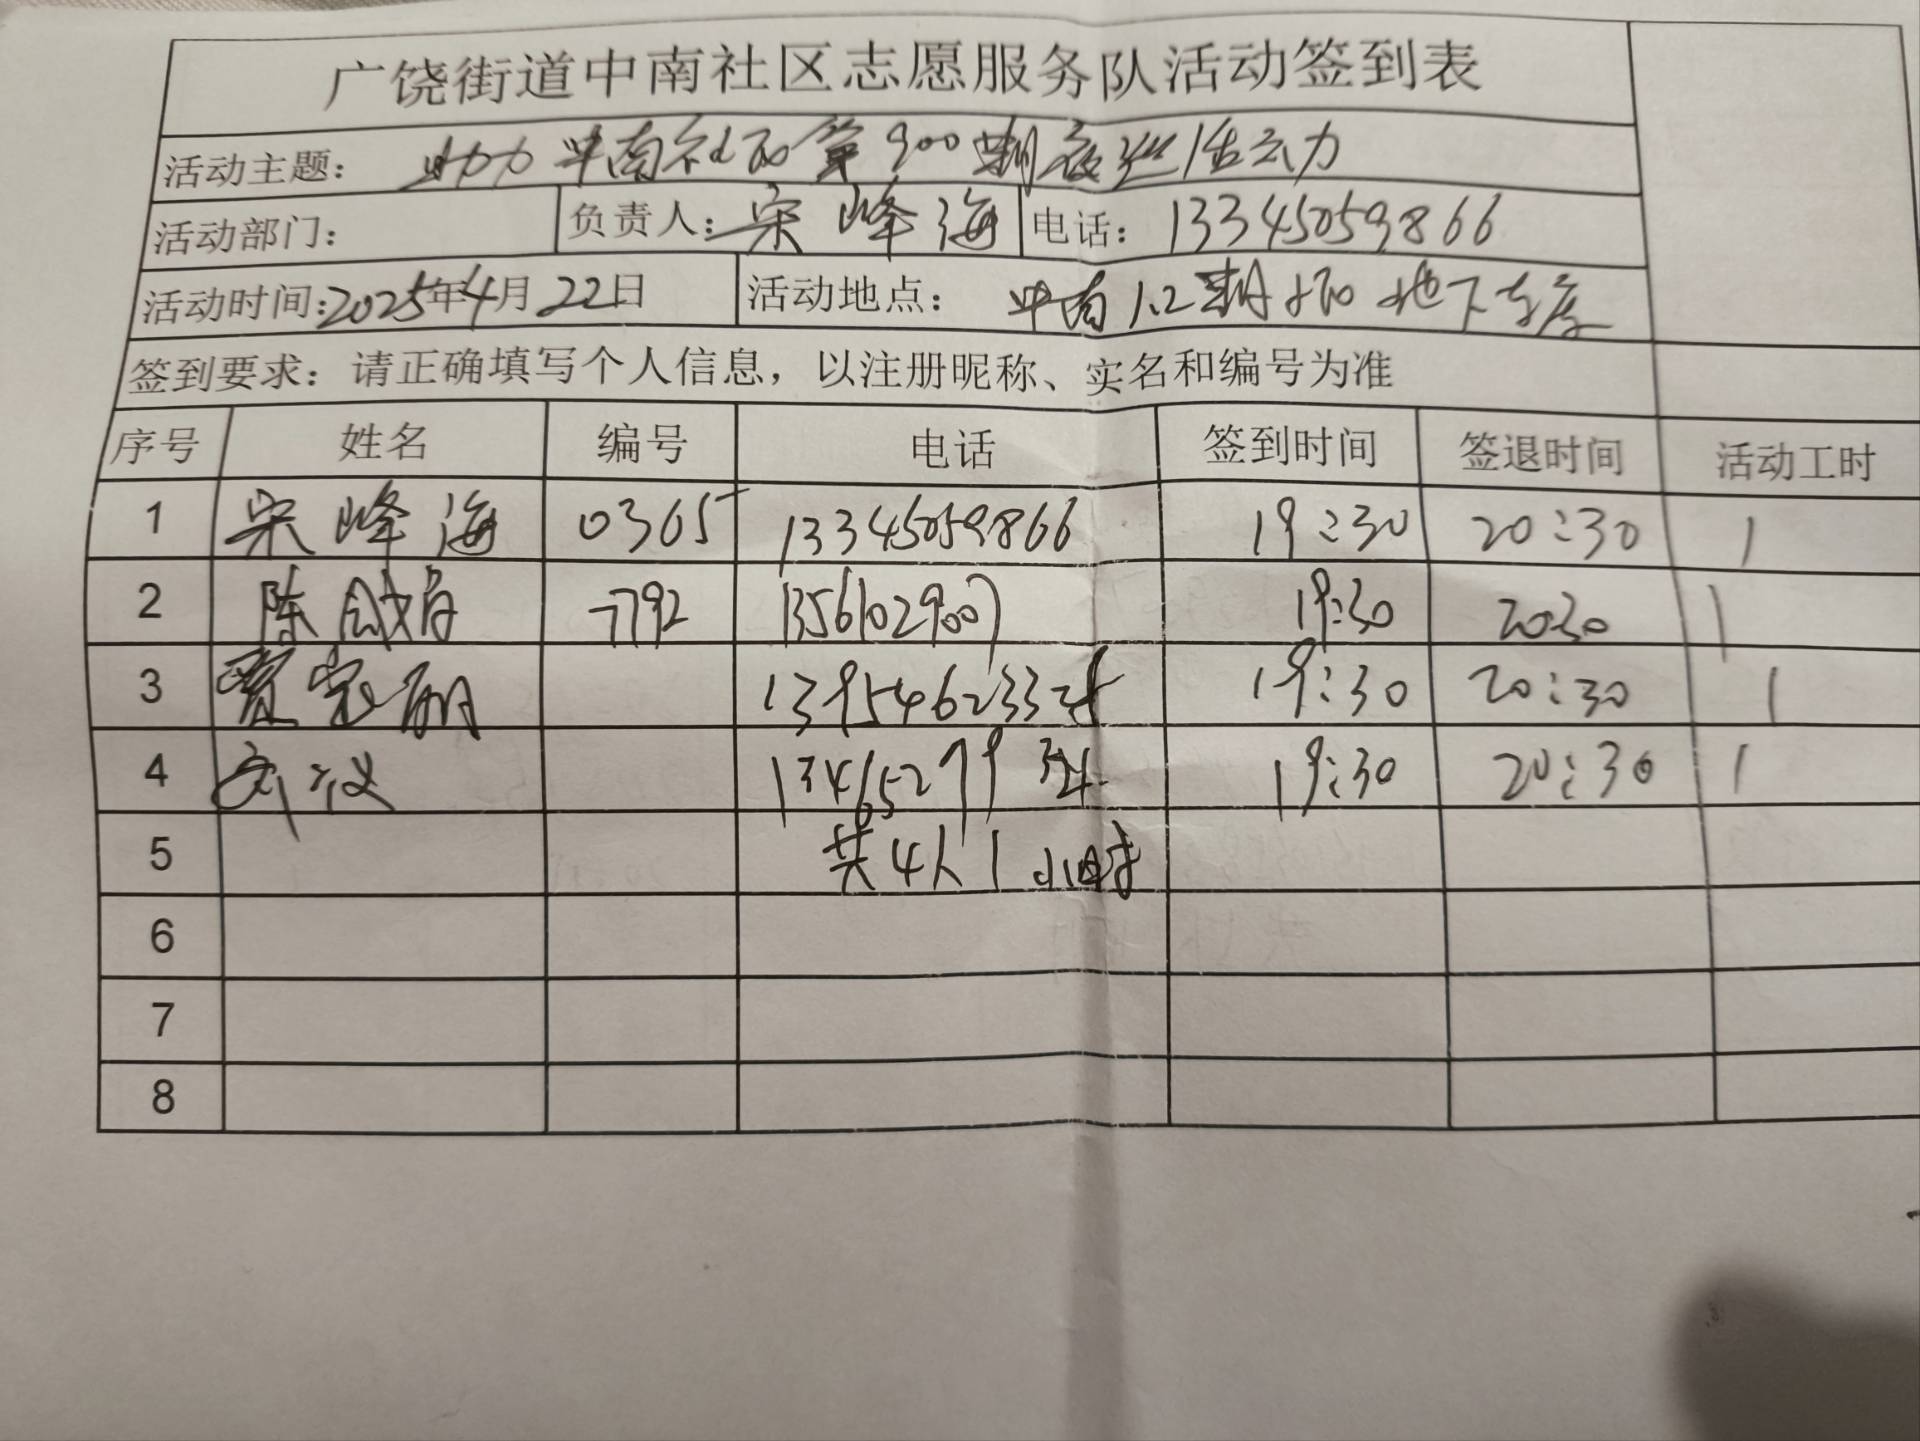 广饶街道中南社区志愿服务队活动签到表
活动主题： 助力中南社区第900期夜巡活动
活动部门： 负责人：宋峰海 电话：13345059866
活动时间：2025年4月22日 活动地点：中南1.2期 地下车库
签到要求：请正确填写个人信息，以注册昵称、实名和编号为准
序号 姓名 编号 电话 签到时间 签退时间 活动工时
1 宋峰海 0365 13345059866 19:30 20:30 1
2 陈 7792 13561029007 19:30 20:30 1
3 贾 19:30 20:30 1
4 刘汉 19:30 20:30 1
5 共4人1小时
6
7
8